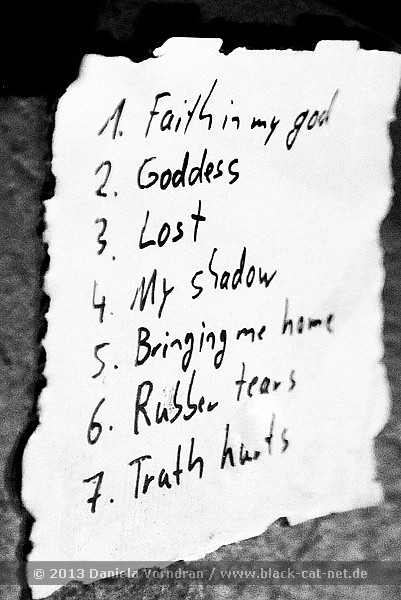 1. Faith in my god
2. Goddess
3. Lost
4. My shadow
5. Bringing me home
6. Rubber tears
7. Truth hurts
© 2013 Daniela Vorndran / www.black-cat-net.de